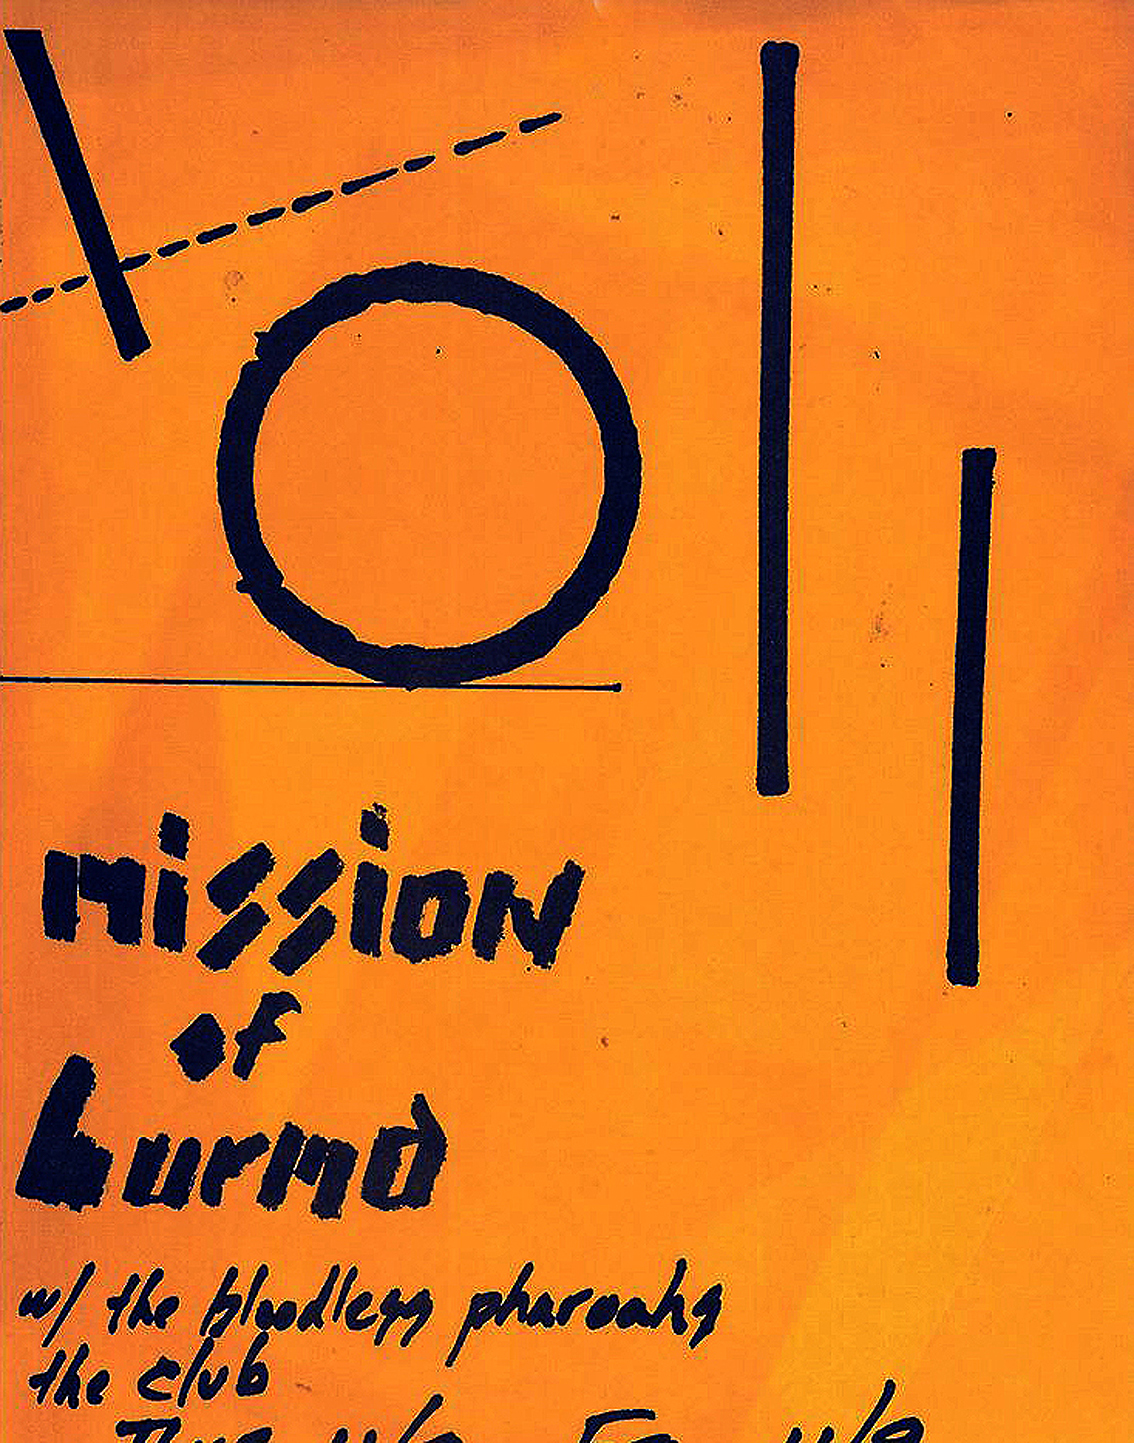 mission
of
burma
w/ the bloodless pharoahs
the club